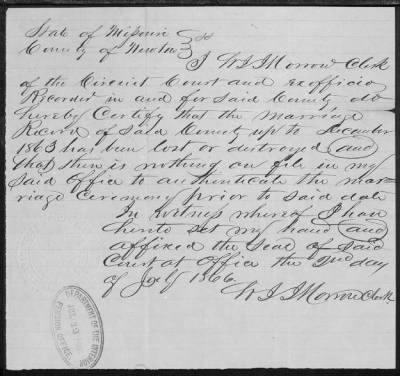 State of Missouri
County of Newton } ss
I W I Morrow Clerk
of the Circuit Court and exofficio
Recorder in and for Said County do
hereby Certify that the marriage
Record of Said County up to December
1863 has been lost or destroyed and
that there is nothing on file in my
Said office to authenticate the mar-
riage Ceremony prior to Said date
In witness whereof I have
hereto set my hand and
affixed the Seal of Said
Court at Office the 2nd day
of July 1866.
W I Morrow Clerk
DEPARTMENT OF THE INTERIOR
PENSION OFFICE